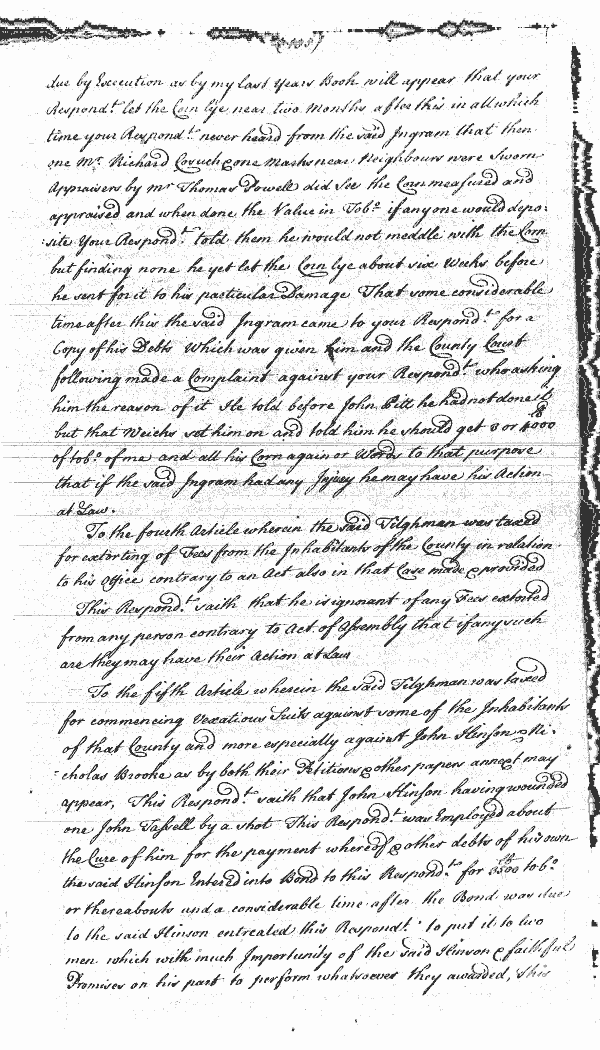 due by Execution as by my last years Book will appear that your
Respond.t let the Corn lye near two Months after this in all which
time your Respond.t never heard from the said Ingram that then
one Mr. Richard & one Marks near Neighbours were Sworn
Appraisers by mr Thomas Powell did See the Corn measured and
appraised and when done the Value in Tob.o if any one would depo:
:site Your Respond.t told them he would not meddle with the Corn
but finding none he yet let the Corn lye about six Weeks before
he sent for it to his particular Damage That some considerable
time after this the said Ingram came to your Respond.t for a
Copy of his Debts Which was given him and the County Court
following made a Complaint against your Respond.t who asking
him the reason of it He told before John Pitt he had not done it
but that Weichs set him on and told him he should get 3 or 4000 lb
of tob.o of me and all his Corn again or Words to that purpose
that if the said Ingram had any Injury he may have his Action
at Law.
To the fourth Article wherein the said Tilghman was taxed
for extorting of Fees from the Inhabitants of the County in relation
to his Office contrary to an Act also in that Case made & provided
This Respond.t saith that he is ignorant of any Fees extorted
from any person contrary to Act of Assembly that if any such
are they may have their Action at Law
To the fifth Article wherein the said Tilghman was taxed
for commencing Vexatious Suits against some of the Inhabitants
of that County and more especially against John Hinson & Ni:
:cholas Brooke as by both their Petitions & other papers annext may
appear, This Respond.t saith that John Hinson having wounded
one John Tassell by a shot This Respond.t was Employed about
the Cure of him for the payment whereof & other debts of his own
the said Hinson Entered into Bond to this Respond.t for 3500 lb tob.o
or thereabouts and a considerable time after the Bond was due
to the said Hinson entreated this Respond.t to put it to two
men which with much Importunity of the said Hinson & faithful
Promises on his part to perform whatsoever they awarded, this